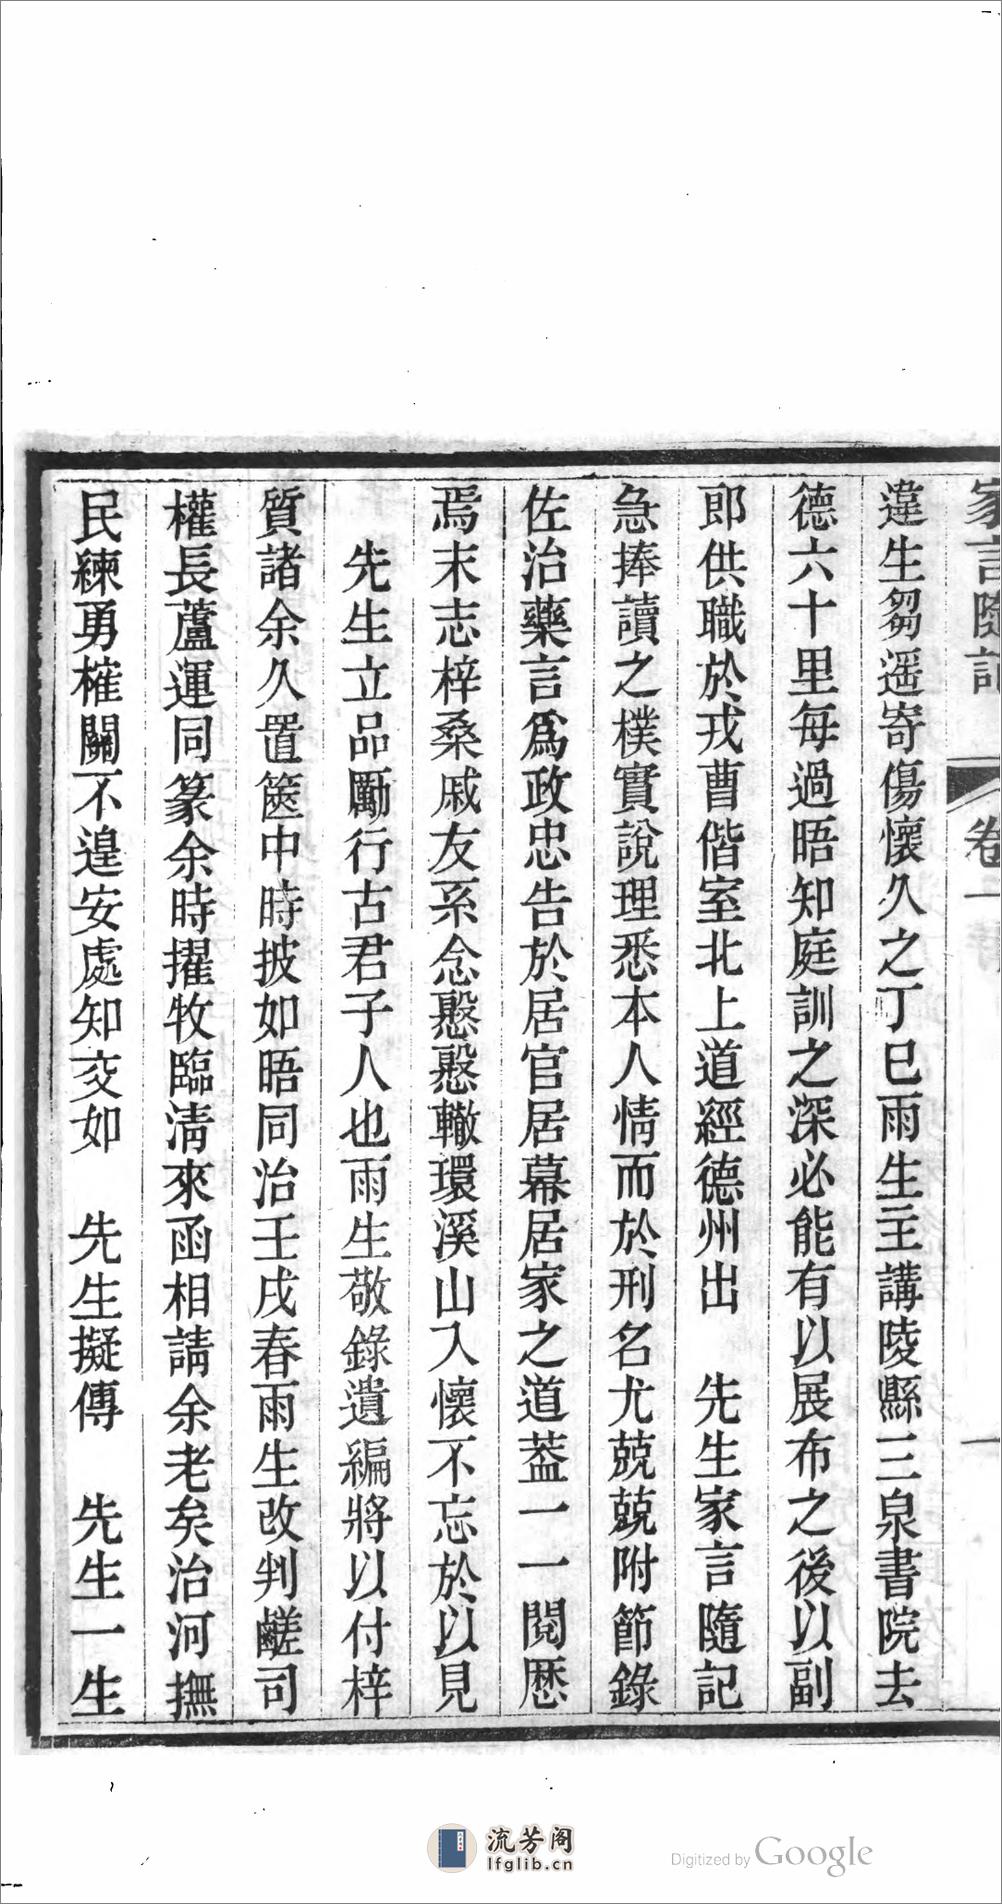 家言隨記 卷一 一
違生芻遥寄傷懷久之丁巳雨生主講陵縣三泉書院去
德六十里每過晤知庭訓之深必能有以展布之後以副
郎供職於戎曹偕室北上道經德州出　先生家言隨記
急捧讀之樸實說理悉本人情而於刑名尤兢兢附節錄
佐治藥言為政忠告於居官居幕居家之道葢一一閱歷
焉末志梓桑戚友系念慇慇轍環溪山入懷不忘於以見
先生立品勵行古君子人也雨生敬錄遺編將以付梓
質諸余久置篋中時披如晤同治壬戌春雨生改判鹺司
權長蘆運同篆余時擢牧臨清來函相請余老矣治河撫
民練勇榷關不遑安處知交如　先生擬傳　先生一生
流芳阁
lfglib.cn
Digitized by Google